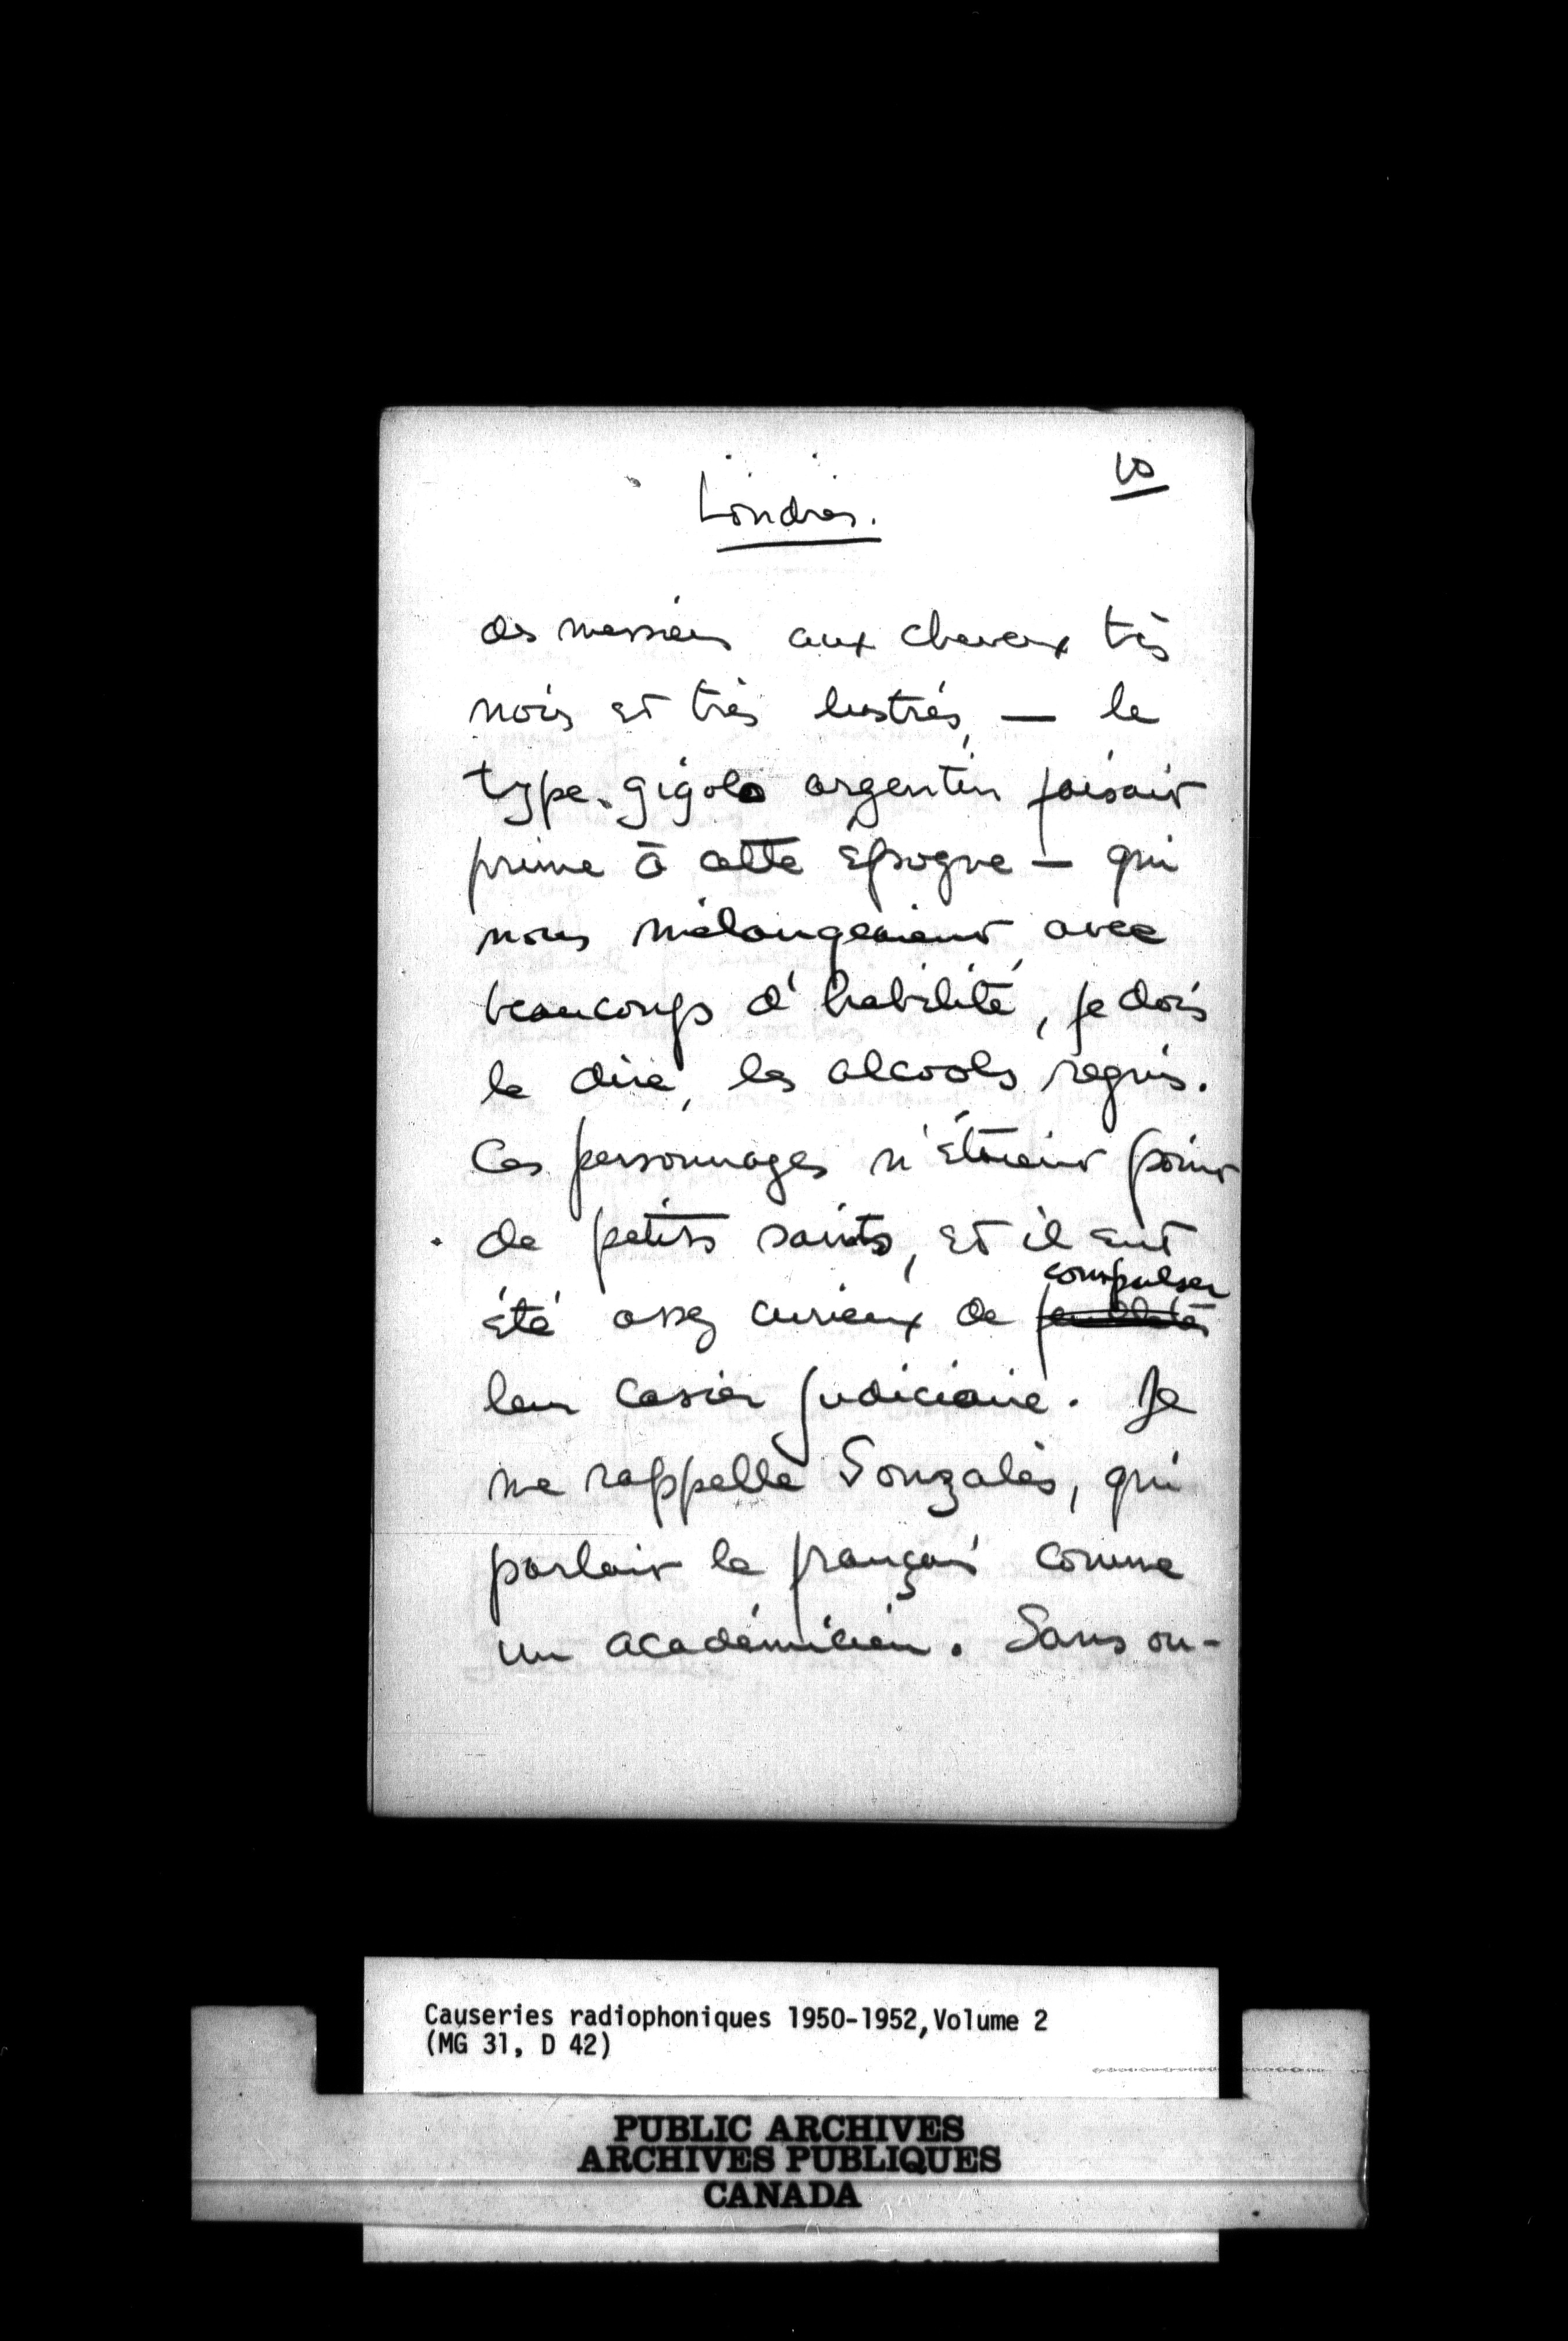 10
Londres.
des messieurs aux cheveux très
noirs et très lustrés, — le
type-gigolo argentin faisait
prime à cette époque — qui
nous mélangeaient, avec
beaucoup d'habilité, je dois
le dire, les alcools requis.
Ces personnages n'étaient point
de petits saints, et il eut
compulser
été assez curieux de feuilleter
leur casier judiciaire. Je
me rappelle Gonzalès, qui
parlait le français comme
un académicien. Sans ou-
Causeries radiophoniques 1950-1952, Volume 2
(MG 31, D 42)
PUBLIC ARCHIVES
ARCHIVES PUBLIQUES
CANADA